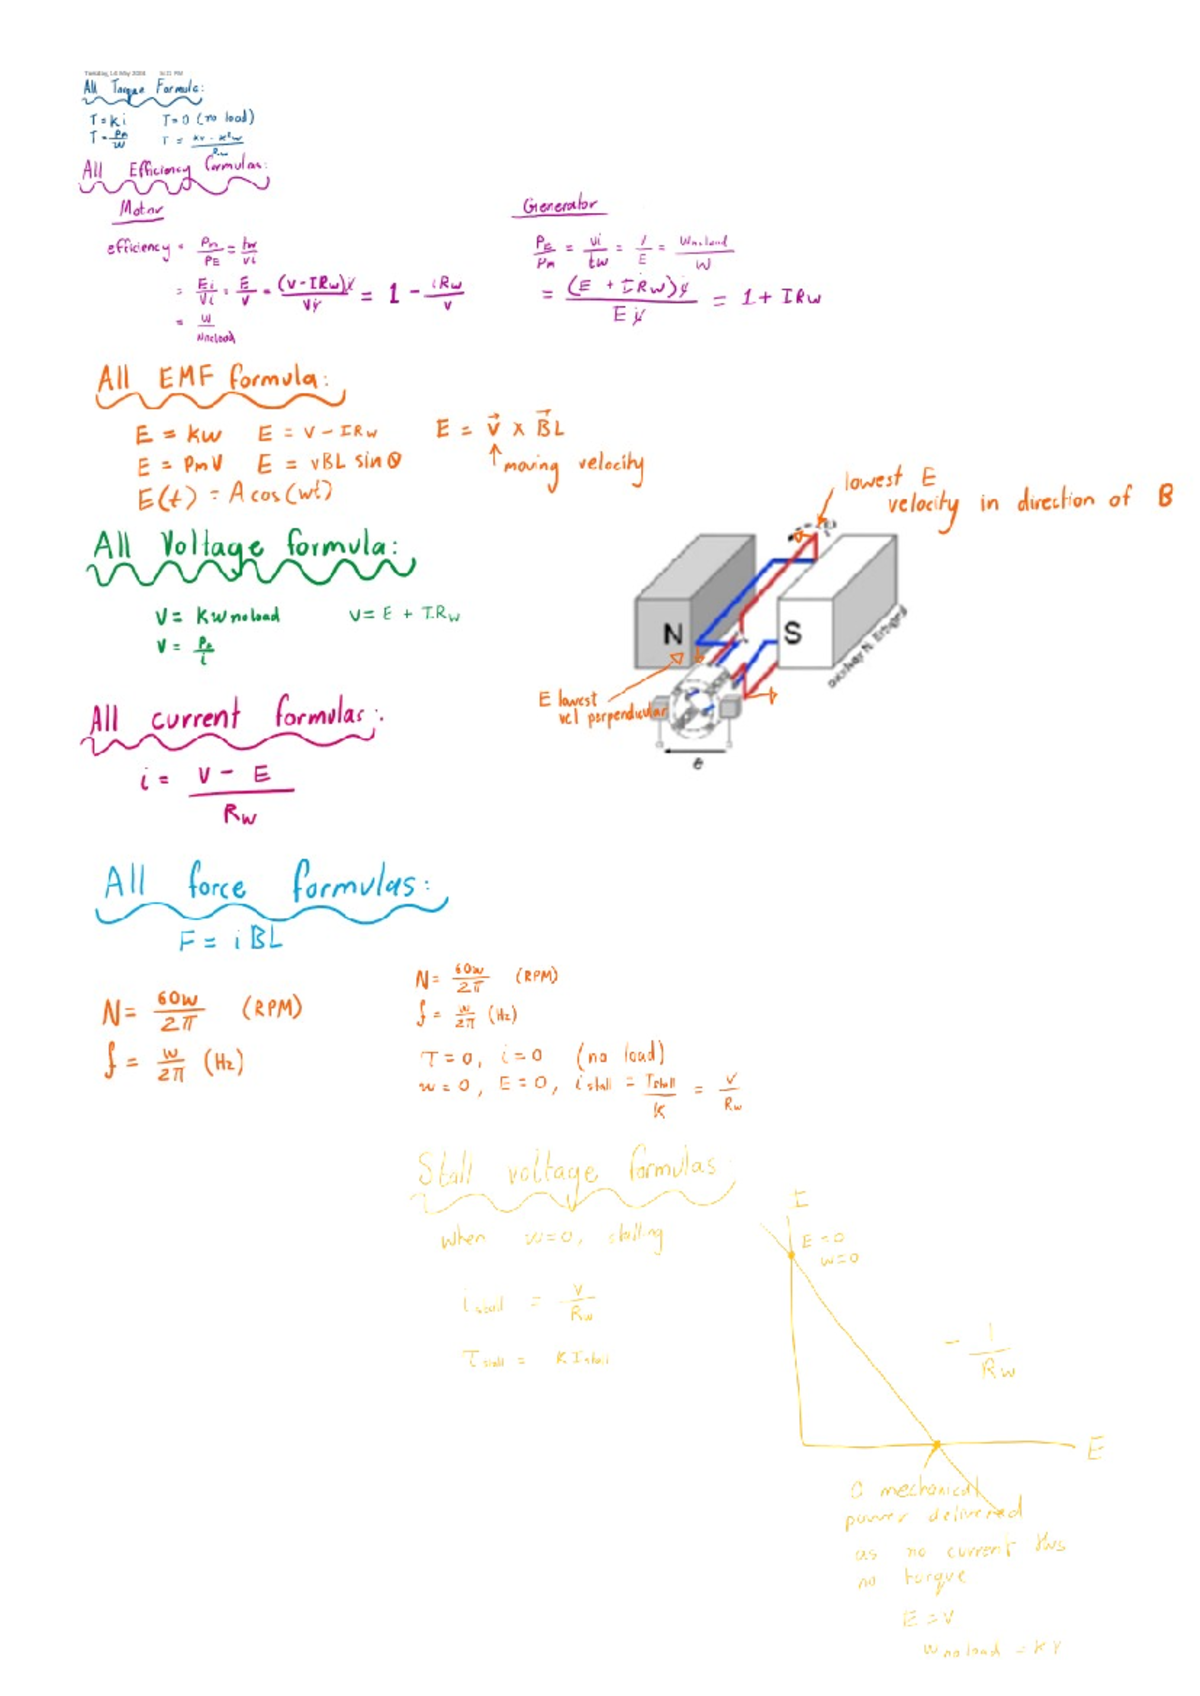 Tuesday, 14 May 2024 PM
All Torque Formula:
T = Ki T = 0 (no load)
T = Pm/W T = (KV - K²w)/Rw
All Efficiency formulas:
Motor
efficiency = Pm/PE = tw/Vi
= Ei/Vi = E/V = (V-IRw)i/Vi = 1 - iRw/V
= W/Wnoload
Generator
PE/Pm = Vi/tw = V/E = Wnoload/W
= (E + IRw)i/Ei = 1 + IRw
All EMF formula:
E = KW E = V - IRw E = v⃗ × B⃗L
E = PmV E = vBL sin θ moving velocity
E(t) = A cos(wt)
lowest E
velocity in direction of B
N S
E lowest
vel perpendicular
e
All Voltage formula:
V = KWnoload V = E + IRw
V = PE/i
All current formulas:
i = (V - E)/Rw
All force formulas:
F = iBL
N = 60w/2π (RPM)
f = w/2π (Hz)
N = 60w/2π (RPM)
f = w/2π (Hz)
T=0, i=0 (no load)
w=0, E=0, istall = Tstall/K = V/Rw
Stall voltage formulas:
when w=0, stalling
istall = V/Rw
Tstall = KIstall
I
E=0
w=0
- 1/Rw
E
0 mechanical
power delivered
as no current thus
no torque
E = V
Wnoload = KV